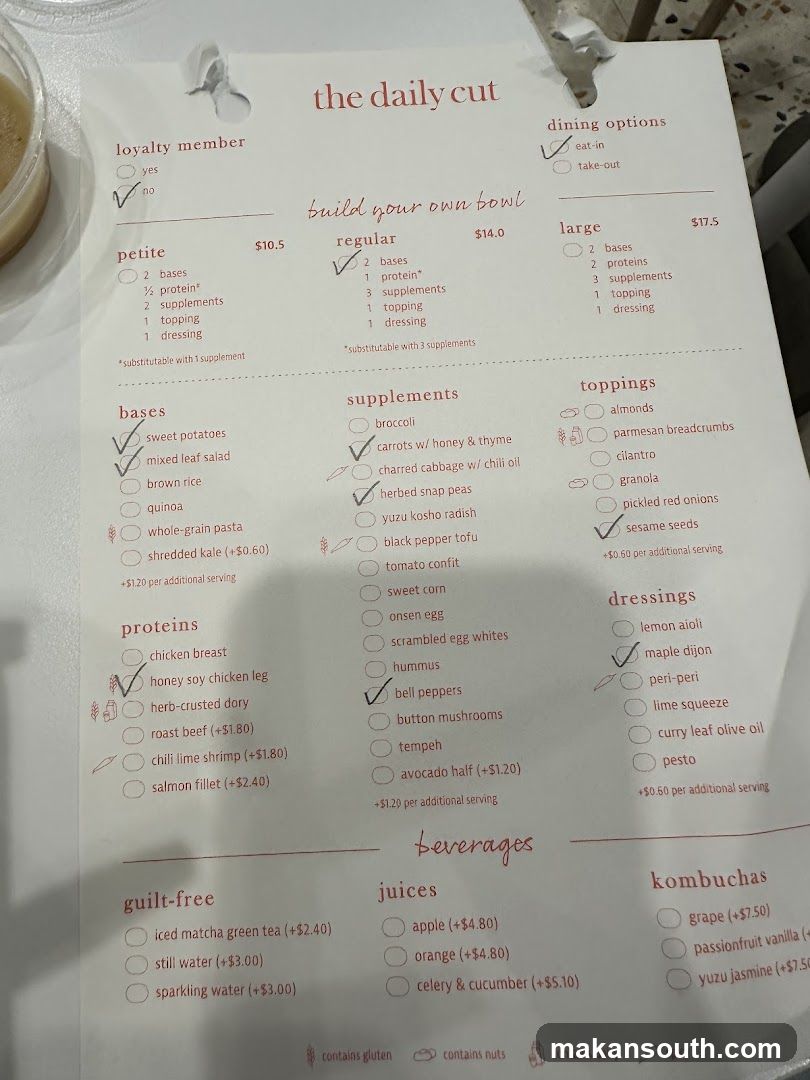 the daily cut
loyalty member
yes
no
dining options
eat-in
take-out
build your own bowl
petite $10.5
2 bases
½ protein*
2 supplements
1 topping
1 dressing
*substitutable with 1 supplement
regular $14.0
2 bases
1 protein*
3 supplements
1 topping
1 dressing
*substitutable with 3 supplements
large $17.5
2 bases
2 proteins
3 supplements
1 topping
1 dressing
bases
sweet potatoes
mixed leaf salad
brown rice
quinoa
whole-grain pasta
shredded kale (+$0.60)
+$1.20 per additional serving
proteins
chicken breast
honey soy chicken leg
herb-crusted dory
roast beef (+$1.80)
chili lime shrimp (+$1.80)
salmon fillet (+$2.40)
supplements
broccoli
carrots w/ honey & thyme
charred cabbage w/ chili oil
herbed snap peas
yuzu kosho radish
black pepper tofu
tomato confit
sweet corn
onsen egg
scrambled egg whites
hummus
bell peppers
button mushrooms
tempeh
avocado half (+$1.20)
+$1.20 per additional serving
toppings
almonds
parmesan breadcrumbs
cilantro
granola
pickled red onions
sesame seeds
+$0.60 per additional serving
dressings
lemon aioli
maple dijon
peri-peri
lime squeeze
curry leaf olive oil
pesto
+$0.60 per additional serving
beverages
guilt-free
iced matcha green tea (+$2.40)
still water (+$3.00)
sparkling water (+$3.00)
juices
apple (+$4.80)
orange (+$4.80)
celery & cucumber (+$5.10)
kombuchas
grape (+$7.50)
passionfruit vanilla (+
yuzu jasmine (+$7.50
contains gluten
contains nuts
makansouth.com